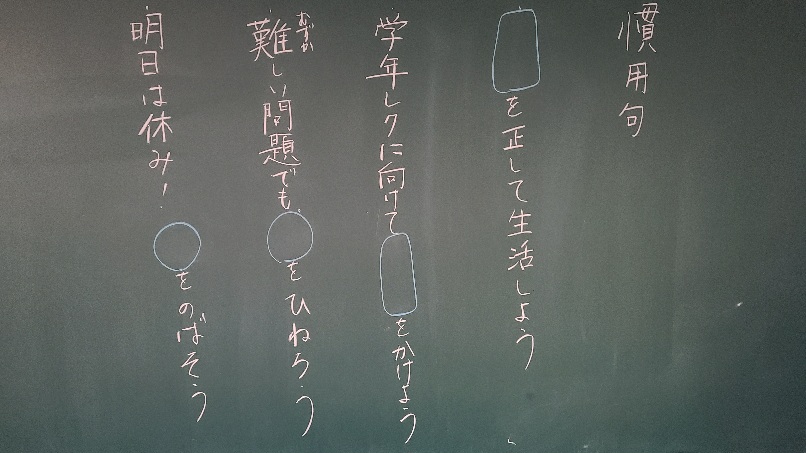 慣用句
を正して生活しよう
学年レクに向けて をかけよう
難しい問題でも をひねろう
むずか
明日は休み! をのばそう